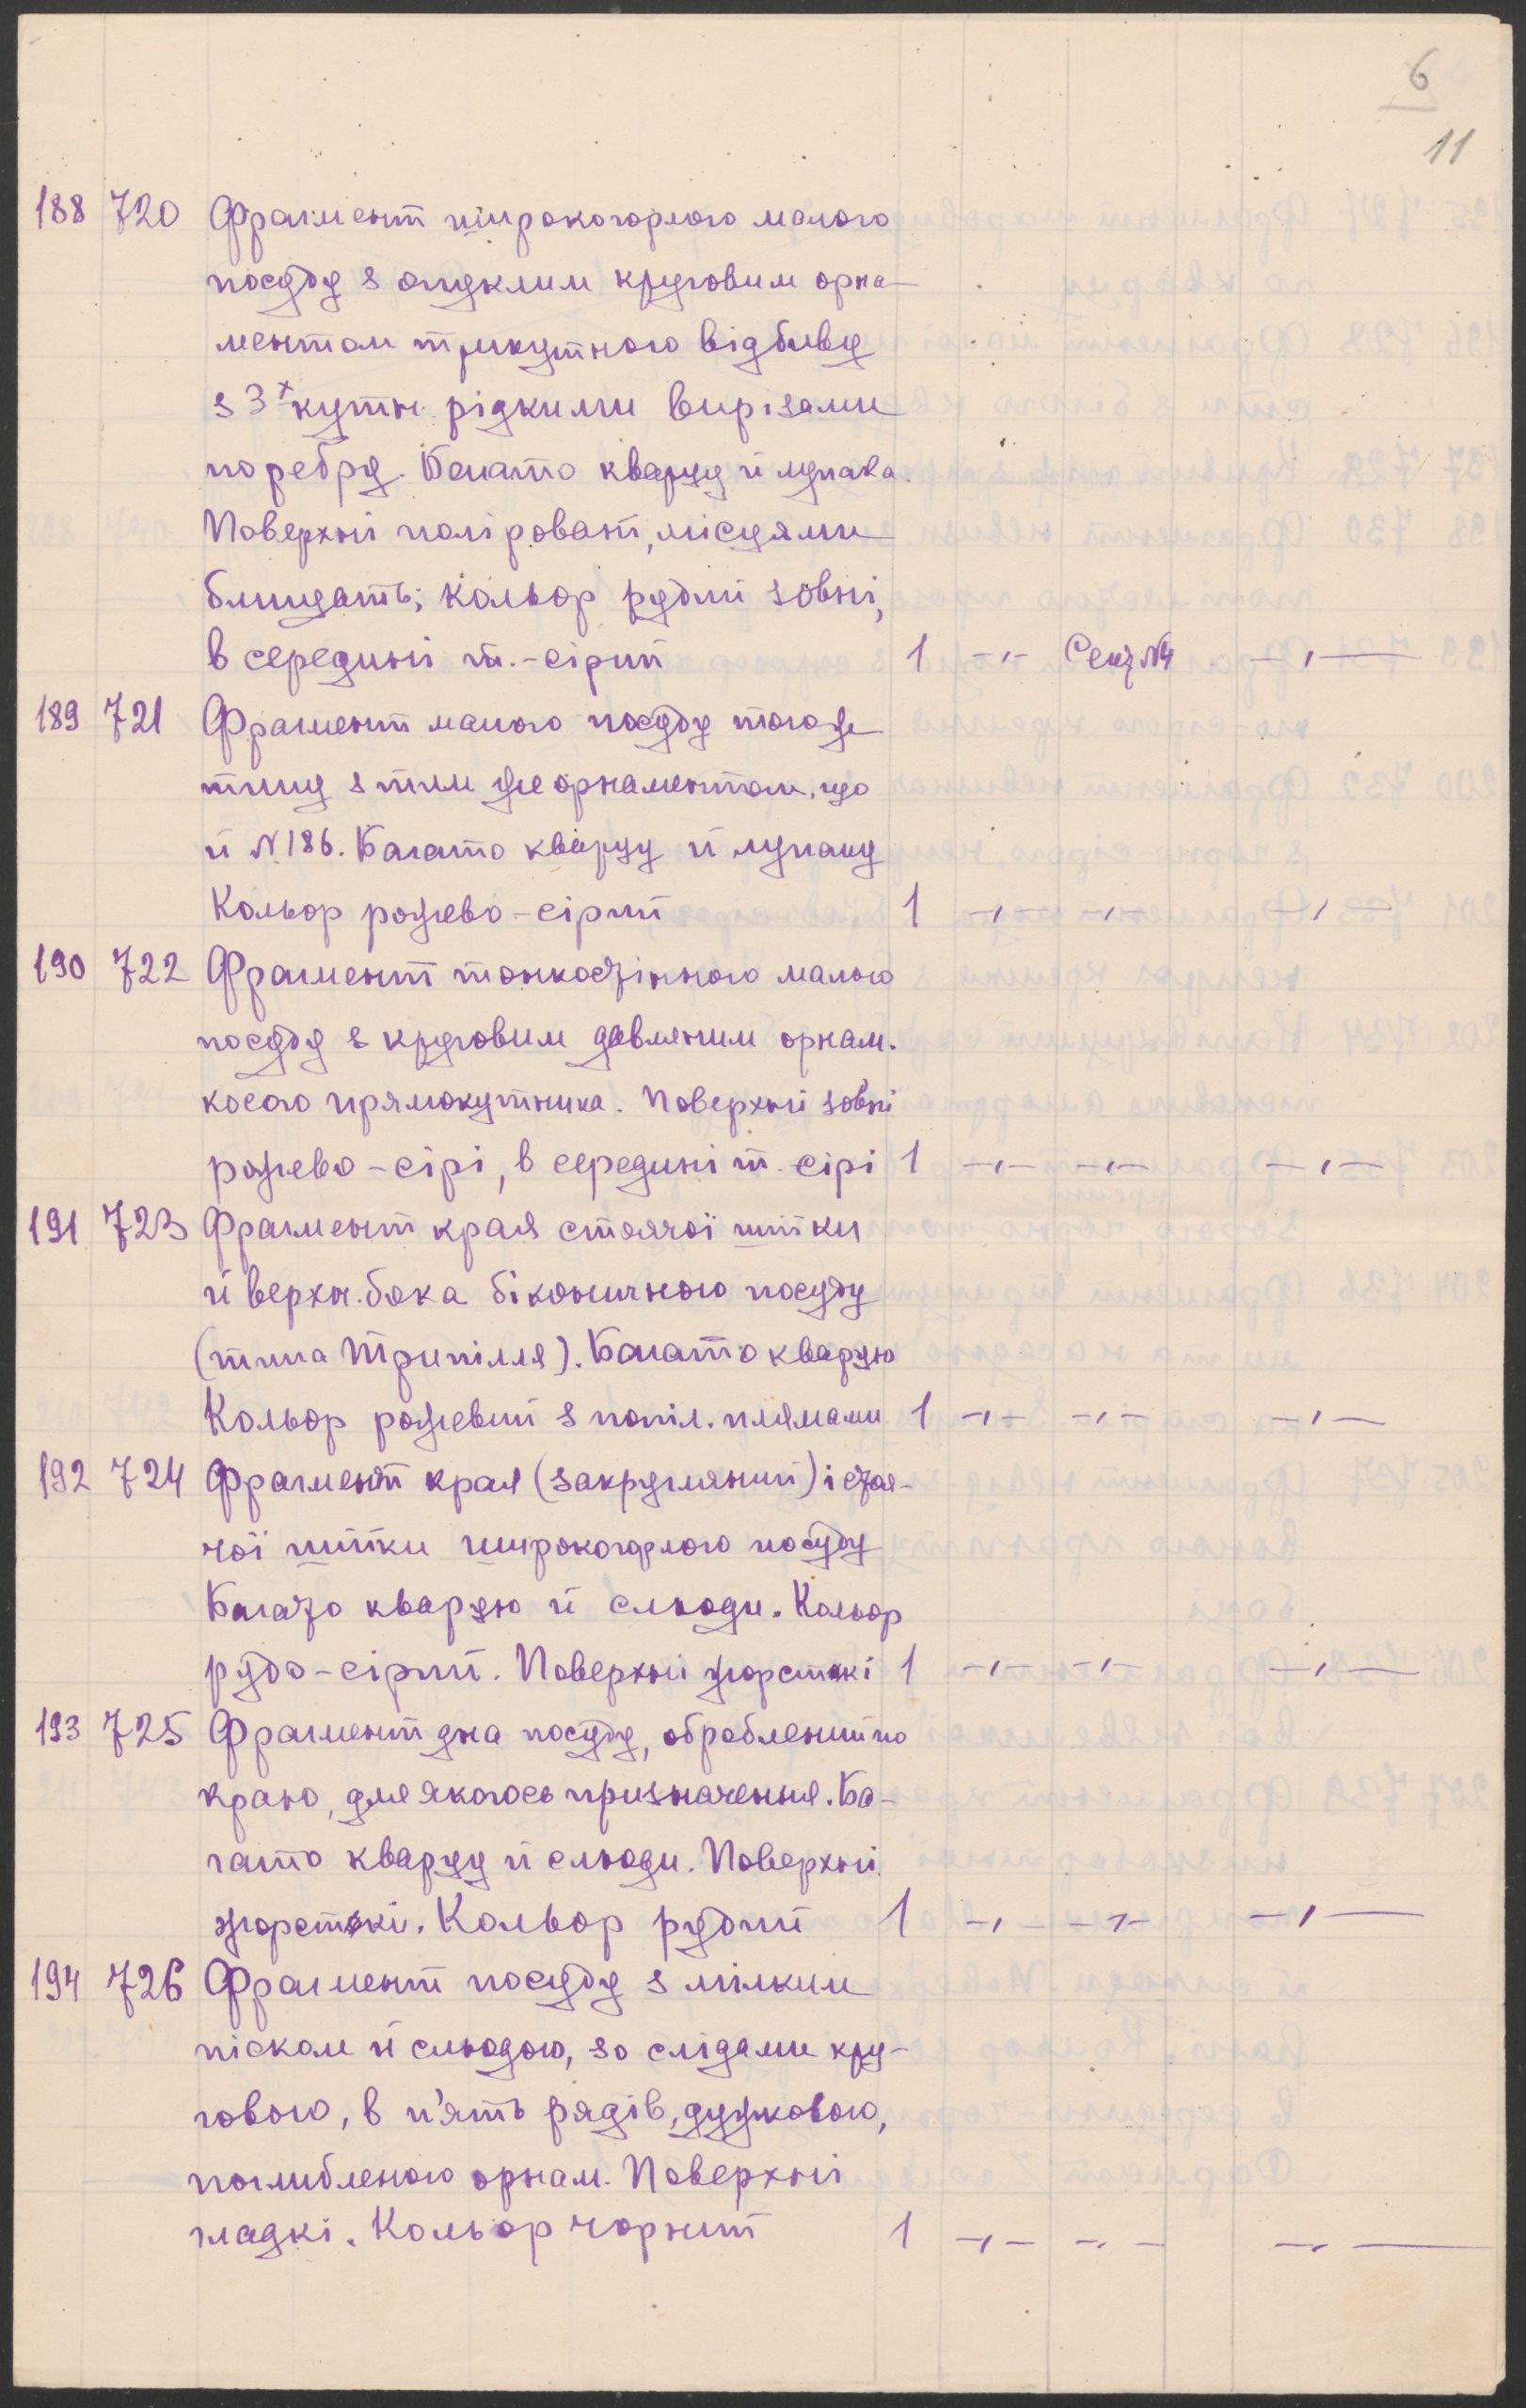 6
11
188 720 Фрагмент широкогорлого малого
посуду з опуклим круговим орна-
ментом трикутного відбиву
з 3х кутн. рідкими вирізами
по ребру. Багато кварцу й лупака.
Поверхні поліровані, місцями
блищать; кольор рудий зовні,
в середині т.-сірий 1 -"- Секр №4 -"-
189 721 Фрагмент малого посуду того же
типу з тим же орнаментом, що
й N 186. Багато кварцу й лупаку
Кольор рожево-сірий 1 -"- -"- -"-
190 722 Фрагмент тонкостінного малого
посуду з круговим давленим орнам.
косого прямокутника. Поверхні зовні
рожево-сірі, в середині т. сірі 1 -"- -"- -"-
191 723 Фрагмент края стоячої шийки
й верхн. бока біконичного посуду
(типа Трипілля). Багато кварцю
Кольор рожевий з попіл. плямами 1 -"- -"- -"-
192 724 Фрагмент края (закругляний) і стоя-
чої шийки широкогорлого посуду
Багато кварцю й слюди. Кольор
рудо-сірий. Поверхні жорсткі 1 -"- -"- -"-
193 725 Фрагмент дна посуду, оброблений по
краю, для якогось призначення. Ба-
гато кварцу й слюди. Поверхні
жорсткі. Кольор рудий 1 -"- -"- -"-
194 726 Фрагмент посуду з мілким
піском й слюдою, зо слідами кру-
гового, в п'ять рядів, дужкового,
поглибленого орнам. Поверхні
гладкі. Кольор чорний 1 -"- -"- -"-